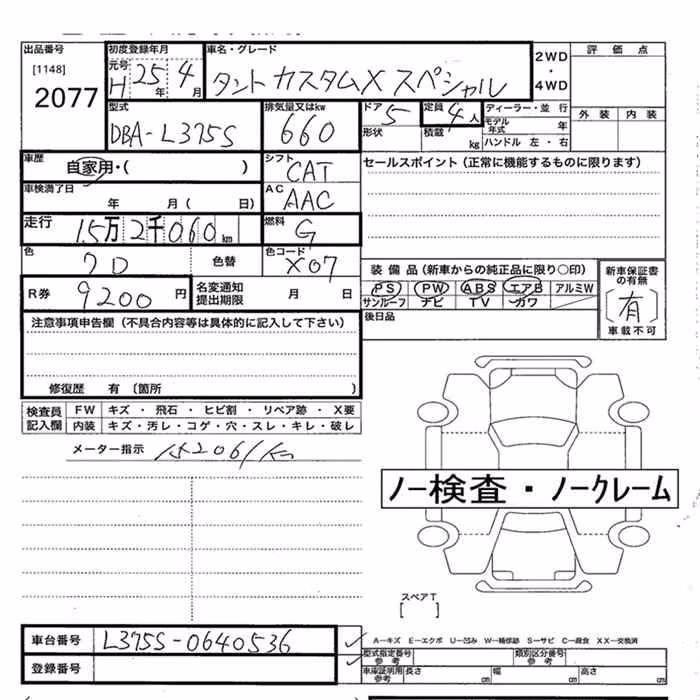 出品番号 初度登録年月 車名・グレード 2WD・4WD 評価点
[1148] 元号 H 25年 4月 タント カスタムX スペシャル
2077
型式 排気量又はkw ドア 定員 ディーラー・並行 外装 内装
DBA-L375S 660 5 4人 モデル年式 年
形状 積載 kg ハンドル 左・右
車歴 シフト セールスポイント（正常に機能するものに限ります）
自家用・( ) CAT
車検満了日 AC
年 月( 日) AAC
走行 燃料
1.5万 2千 060 km G
色 色替 色コード 装備品（新車からの純正品に限り〇印） 新車保証書の有無
X07 PS PW ABS エアB アルミW 〔有〕
R券 9200円 名変通知提出期限 月 日 サンルーフ ナビ TV カワ 車載不可
注意事項申告欄（不具合内容等は具体的に記入して下さい） 後日品
修復歴 有〔箇所 〕
検査員記入欄 FW キズ・飛石・ヒビ割・リペア跡・X要
内装 キズ・汚レ・コゲ・穴・スレ・キレ・破レ
メーター指示 15206/km
ノー検査・ノークレーム
スペアT
[ ]
車台番号 L375S-0640536
A-キズ E-エクボ U-凹み W-補修跡 S-サビ C-腐食 XX-交換済
登録番号 型式指定番号 参考 類別区分番号 参考
車庫証明用 参考 長さ cm 幅 cm 高さ cm